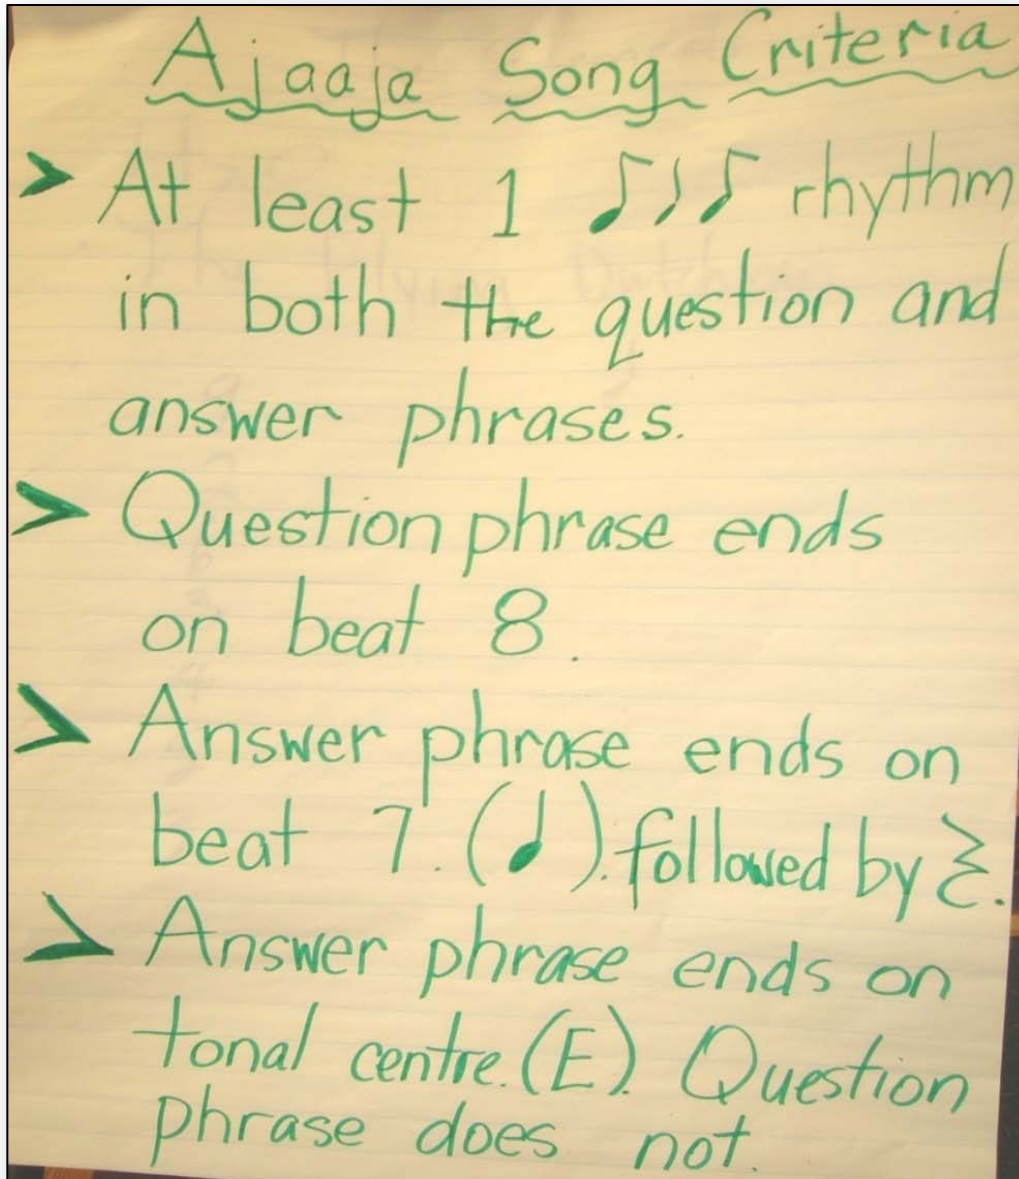 Ajaaja Song Criteria
> At least 1 ♪♩♪ rhythm
in both the question and
answer phrases.
> Question phrase ends
on beat 8.
> Answer phrase ends on
beat 7. (♩). followed by 𝄽.
> Answer phrase ends on
tonal centre. (E). Question
phrase does not.